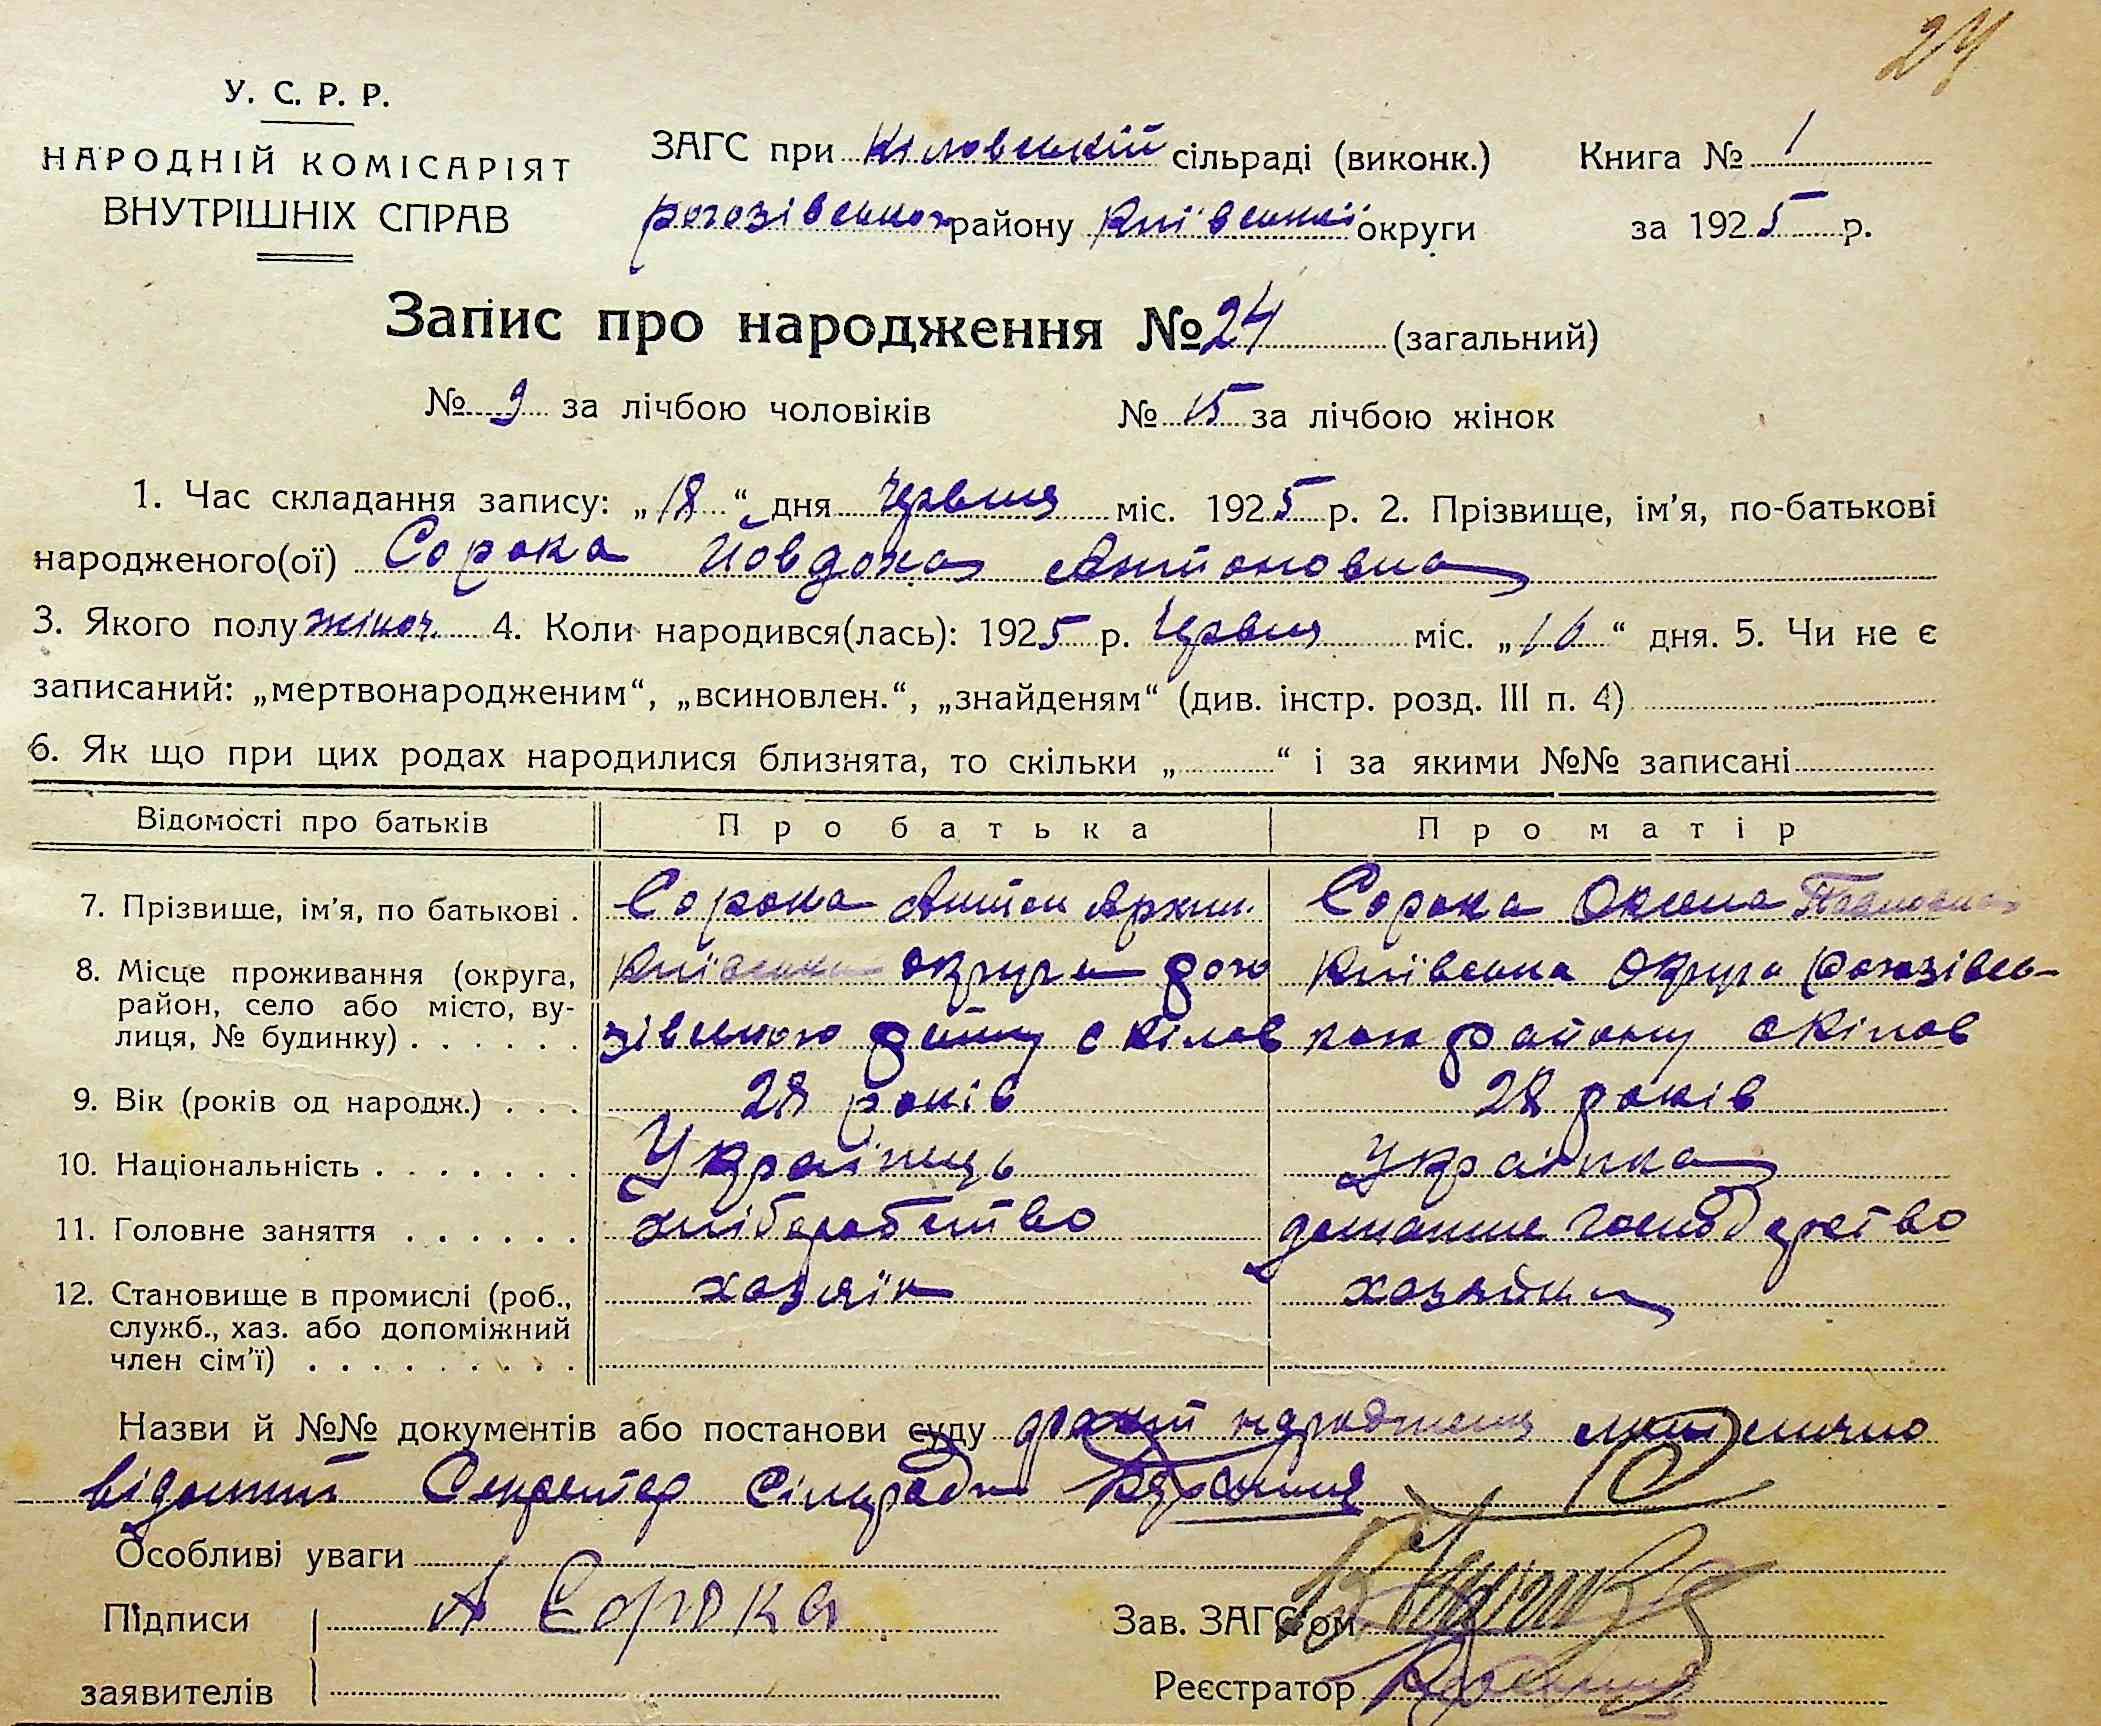 24
У. С. Р. Р.
НАРОДНІЙ КОМІСАРІЯТ
ВНУТРІШНІХ СПРАВ
ЗАГС при Кіловській сільраді (виконк.)
Рогозівського району Київської округи
Книга № 1
за 1925 р.
Запис про народження № 24 (загальний)
№ 9 за лічбою чоловіків № 15 за лічбою жінок
1. Час складання запису: „18“ дня Червня міс. 1925 р. 2. Прізвище, ім'я, по-батькові
народженого(ої) Сорока Йовдоха Антоновна
3. Якого полу жіноч. 4. Коли народився(лась): 1925 р. Червня міс. „16“ дня. 5. Чи не є
записаний: „мертвонародженим“, „всиновлен.“, „знайденям“ (див. інстр. розд. III п. 4)
6. Як що при цих родах народилися близнята, то скільки „ “ і за якими №№ записані
Відомості про батьків Про батька Про матір
7. Прізвище, ім'я, по батькові . Сорока Антон Архип. Сорока Оксена Павловна
8. Місце проживання (округа, район, село або місто, вулиця, № будинку) . . . . . .
Київська округа Рого
зівського району с Кілов
Київська округа Рогозівсь-
кого району с Кілов
9. Вік (років од народж.) . . . 28 років 28 років
10. Національність . . . . . . . Українець Українка
11. Головне заняття . . . . . . хліборобство домашне господарство
12. Становище в промислі (роб.,
служб., хаз. або допоміжний
член сім'ї) . . . . . . . . .
хазяїн хазяйка
Назви й №№ документів або постанови суду факт народження
відомий Секретар Сільради
Особливі уваги
Підписи А Сорока
заявителів
Зав. ЗАГС'ом
Реєстратор